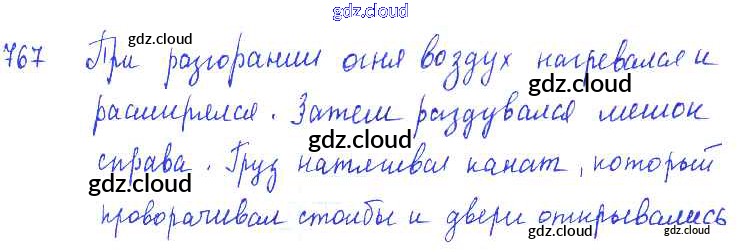 gdz.cloud
gdz.cloud
767 При разгорании огня воздух нагревался и
gdz.cloud
расширялся. Затем раздувался мешок
gdz.cloud
справа. Груз натягивал канат, который
gdz.cloud
gdz.cloud
проворачивал столбы и двери открывались
gdz.cloud
gdz.cloud